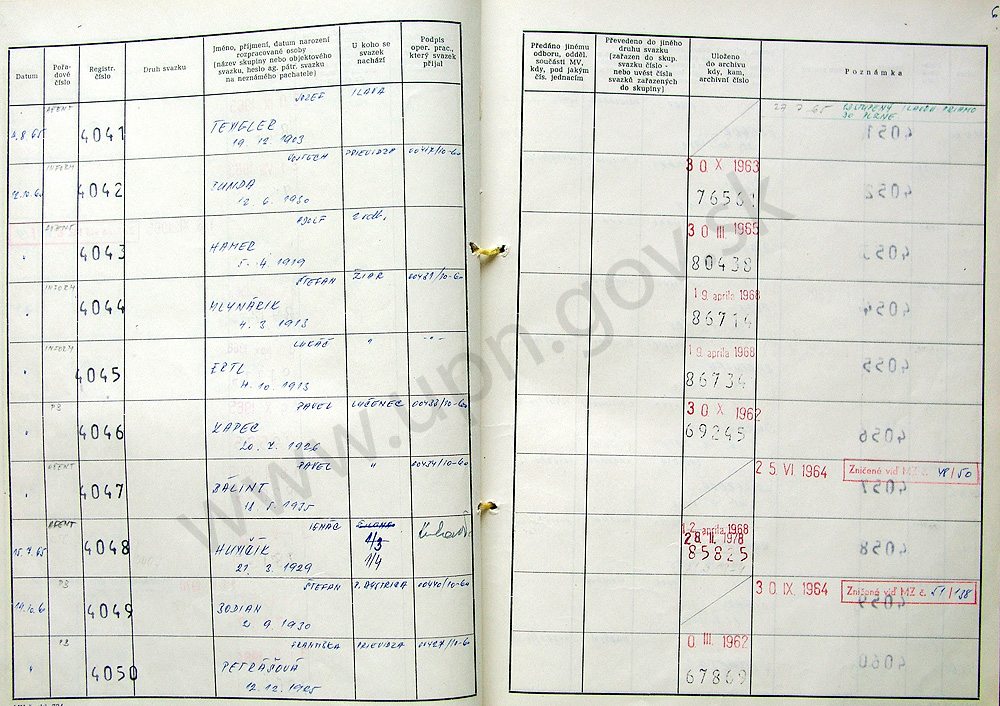 Datum
Pořa-
dové
číslo
Registr.
číslo
Druh svazku
Jméno, příjmení, datum narození
rozpracované osoby
(název skupiny nebo objektového
svazku, heslo ag. pátr. svazku
na neznámého pachatele)
U koho se
svazek
nachází
Podpis
oper. prac.,
který svazek
přijal
AGENT JOZEF ILAVA
4041 TENGLER
19. 12. 1903
INFORM VOJTECH PRIEVIDZA 00417/10-60
12.10.60 4042
12. 6. 1930
AGENT ADOLF 2 odb.
4043 HAMER
5. 4. 1919
INFORM ŠTEFAN ŽIAR 00431/10-60
4044 HLYNÁRIK
4. 3. 1913
INFORM LUKÁČ "
" 4045 ERTL
4. 10. 1913
PS PAVEL LUČENEC 00433/10-60
" 4046 KAPEC
20. 7. 1926
AGENT PAVEL " 00434/10-60
" 4047 BÁLINT
18. 5. 1935
AGENT IGNÁC
4/3
15.7.65 4048
1/4
21. 3. 1929
PS ŠTEFAN B. BYSTRICA 00440/10-60
14.10.60 4049 BODIAN
2. 9. 1930
PS FRANTIŠKA PRIEVIDZA 00427/10-60
" 4050 PETRÁŠOVÁ
12. 12. 1905
Předáno jinému
odboru, odděl.
součásti MV,
kdy, pod jakým
čís. jednacím
Převedeno do jiného
druhu svazku
[zařazen do skup.
svazku číslo -
nebo uvést čísla
svazků zařazených
do skupiny]
Uloženo
do archivu
kdy, kam,
archivní číslo
Poznámka
6
27 7. 65
30 X 1963
30 III. 1965
80438
19. aprila 1968
86714
19. aprila 1968
86734
30 X 1962
69245
25. VI 1964 Zničené viď MZ č. 48/50
12. aprila 1968
28. II. 1978
85825
30. IX. 1964 Zničené viď MZ č. 51/138
0 III. 1962
67869
www.upn.gov.sk